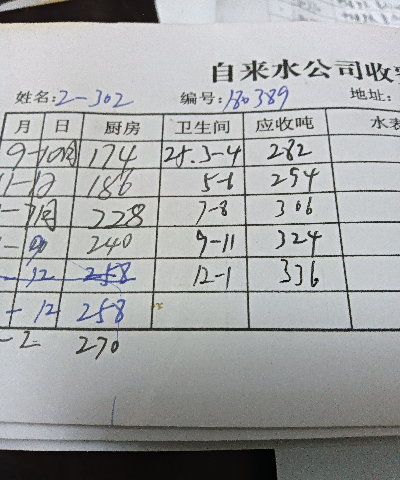 自来水公司收
姓名:2-302 编号:180389 地址:
月 日 厨房 卫生间 应收吨 水表
9-10月 174 25.3-4 282
11-12 186 5-6 294
1-7月 228 7-8 306
240 9-11 324
12 258 12-1 336
12 258
-2 270